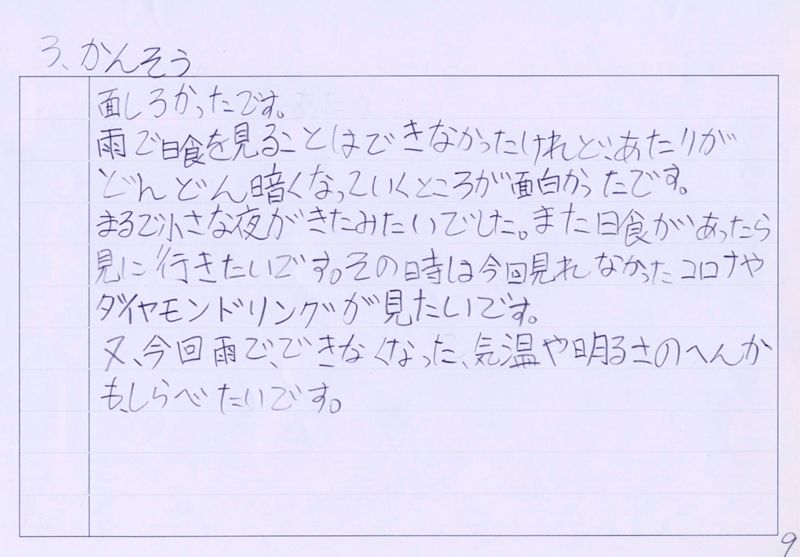 3、かんそう
面しろかったです。
雨で日食を見ることはできなかったけれど、あたりが
どんどん暗くなっていくところが面白かったです。
まるで小さな夜がきたみたいでした。また日食があったら
見に行きたいです。その時は今回見れなかったコロナや
ダイヤモンドリングが見たいです。
又、今回雨で、できなくなった、気温や明るさのへんか
も、しらべたいです。
9